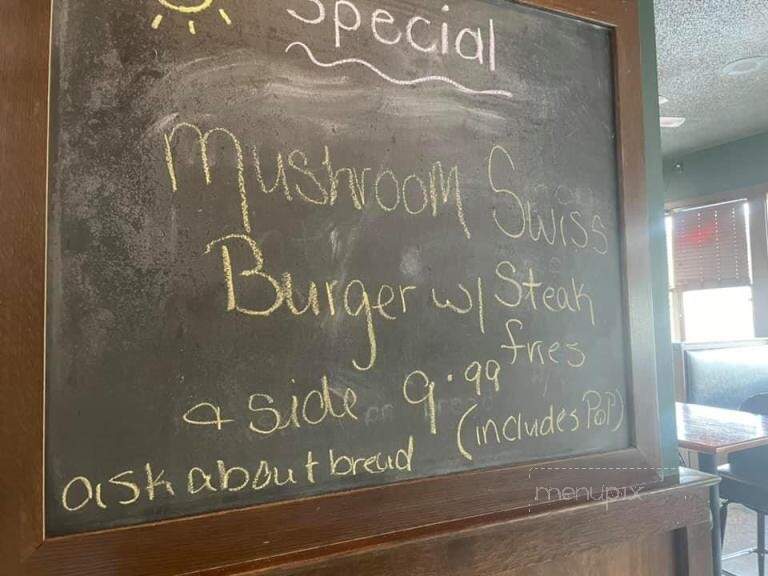 Special
Mushroom Swiss
Burger w/ Steak
fries
& side 9.99
(includes Pop)
ask about bread
menupix